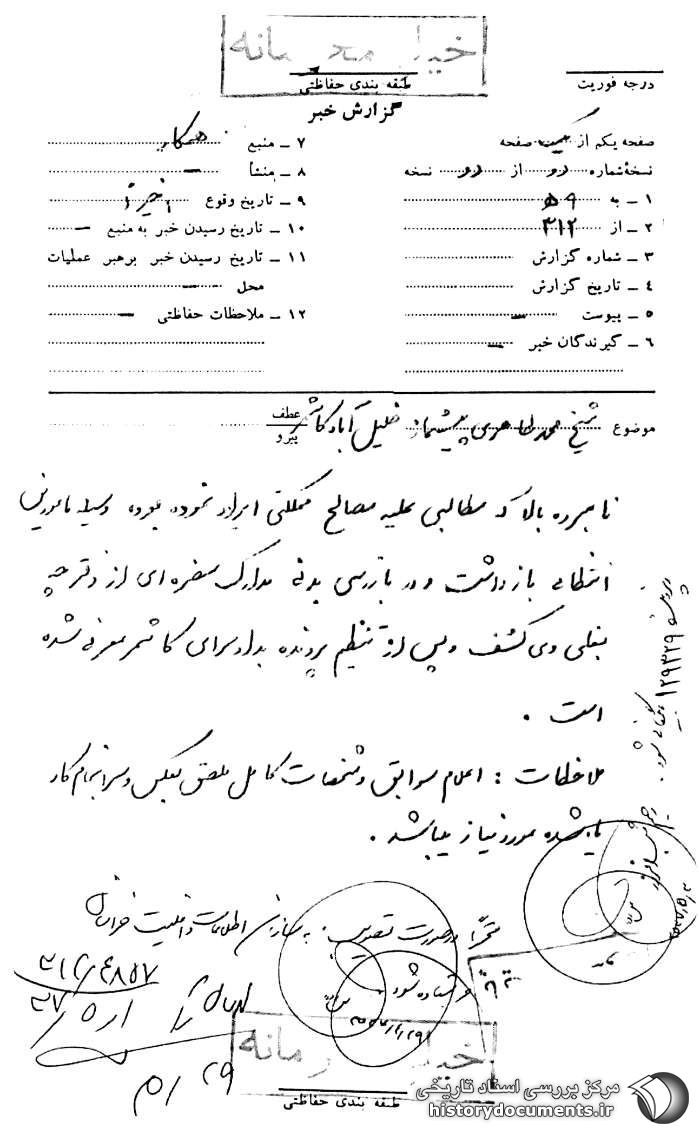 خیلی محرمانه
درجه فوریت
طبقه بندی حفاظتی
گزارش خبر
صفحه یکم از یک صفحه
نسخه شماره از نسخه
۱ - به ۵۹
۲ - از ۳۱۲
۳ - شماره گزارش
۴ - تاریخ گزارش
۵ - پیوست —
۶ - گیرندگان خبر —
۷ - منبع همکار
۸ - منشأ —
۹ - تاریخ وقوع اخیراً
۱۰ - تاریخ رسیدن خبر به منبع —
۱۱ - تاریخ رسیدن خبر برهبر عملیات
محل —
۱۲ - ملاحظات حفاظتی —
موضوع شیخ محمد طاهری پیشنماز خلیل آباد کاشمر
عطف
پیرو
نامبرده بالا که مطالبی علیه مصالح مملکتی ایراد نموده بوده وسیله مامورین
انتظامی بازداشت و در بازرسی بدنی مدارک مضره ای از دفترچه
بغلی وی کشف و پس از تنظیم پرونده بدادسرای کاشمر معرفی شده
است .
ملاحظات : اعلام سوابق و مشخصات کامل ملصق بعکس و سرانجام کار
یاد شده مورد نیاز میباشد .
در صورت تصویب به سازمان اطلاعات و امنیت خراسان
فرستاده شود
۳۱۲/۴۸۵۷
۳۷/۵/۱
۲۹/۵
۱۲۹۳۲۹
خیلی محرمانه
طبقه بندی حفاظتی
مرکز بررسی اسناد تاریخی
historydocuments.ir